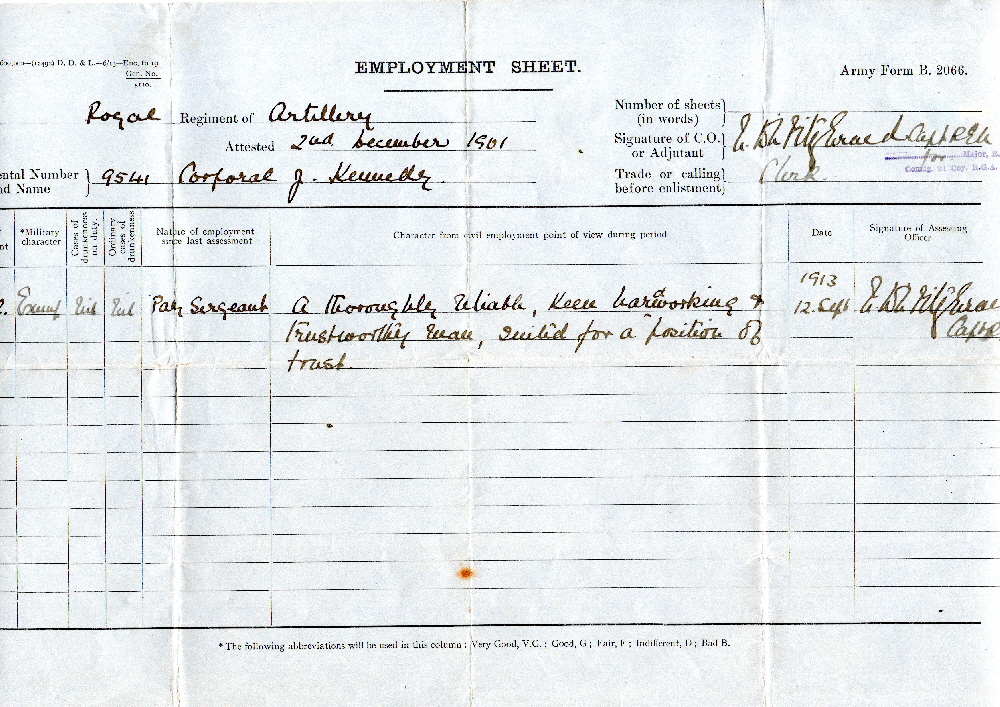 D. D. & L.
Gen. No.
EMPLOYMENT SHEET.
Army Form B. 2066.
Royal Regiment of Artillery
Attested 2nd December 1901
ental Number
nd Name } 9541 Corporal J. Kennedy.
Number of sheets
(in words)
Signature of C.O.
or Adjutant
Capt RGA
for Major, R.
Comdg. 21 Coy. R.G.A.
Trade or calling
before enlistment } Clerk.
nt
*Military
character
Cases of
drunkenness
on duty.
Ordinary
cases of
drunkenness
Nature of employment
since last assessment
Character from civil employment point of view during period
Date
Signature of Assessing
Officer
Nil Nil Pay Sergeant A thoroughly reliable, keen hardworking &
trustworthy man, suited for a position of
trust.
1913
12. Sept
Capt R
* The following abbreviations will be used in this column : Very Good, V.G. ; Good, G ; Fair, F ; Indifferent, D ; Bad B.